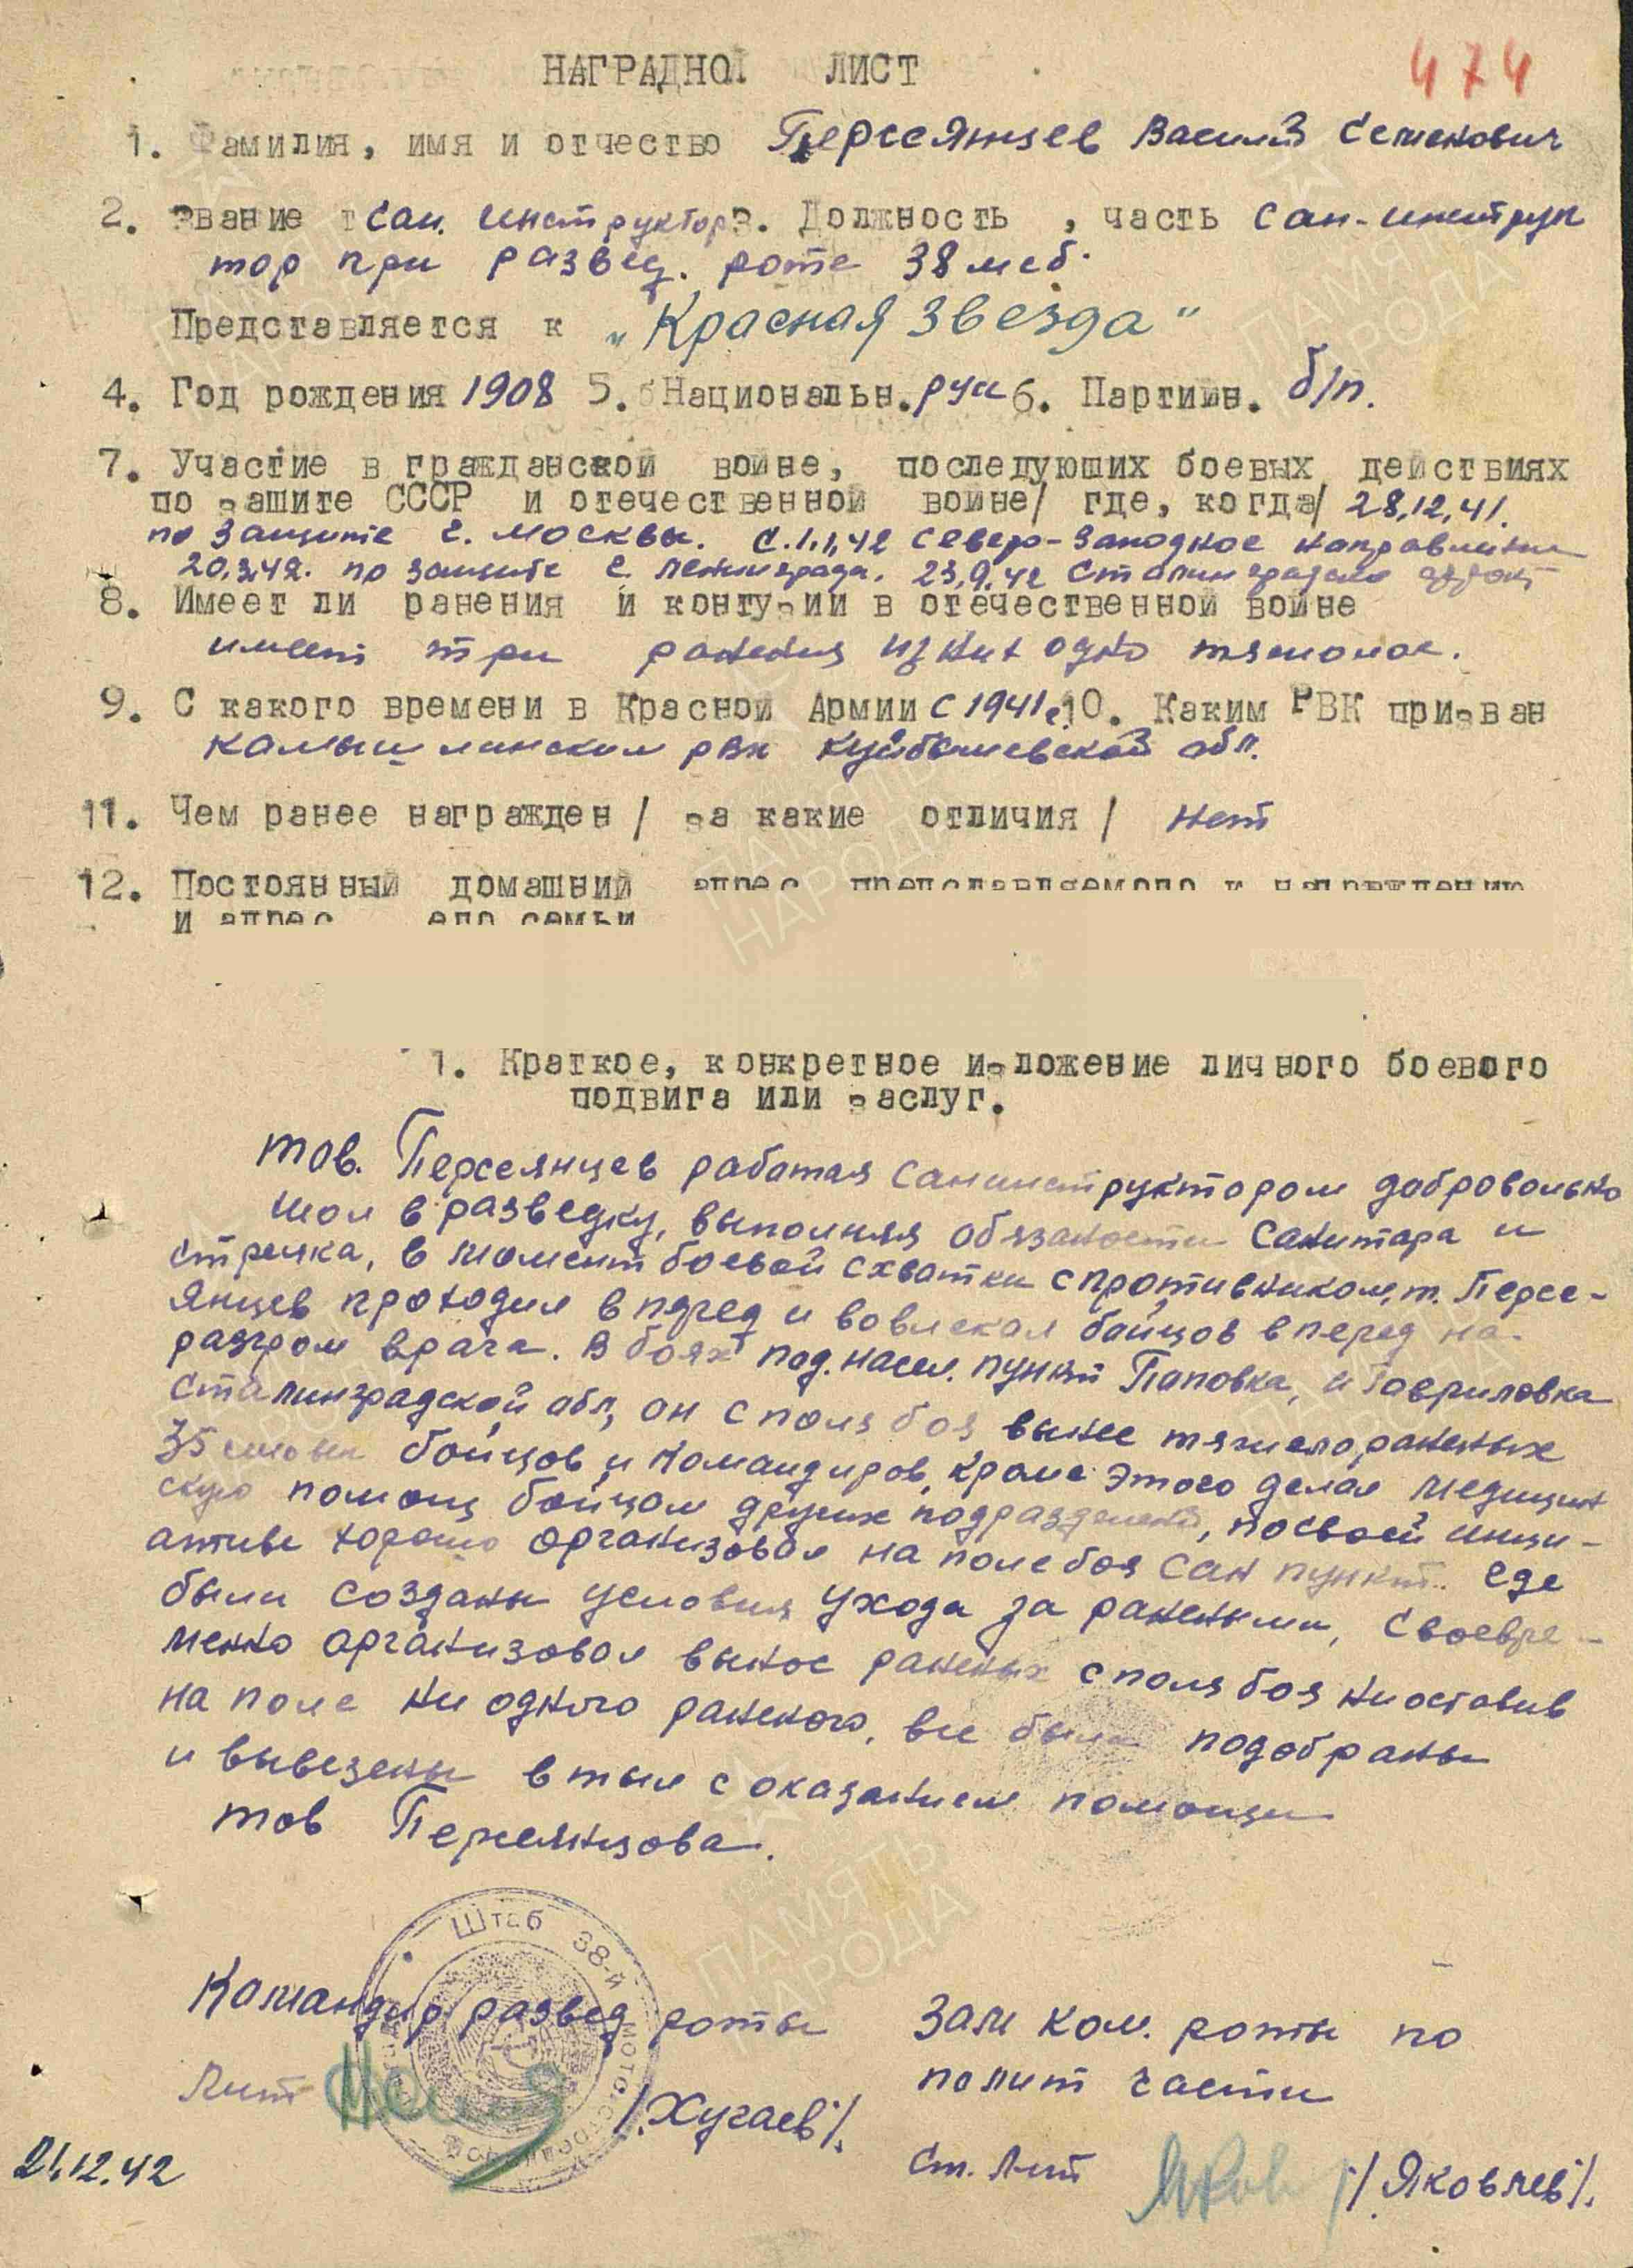 474
НАГРАДНОЙ ЛИСТ
1. Фамилия, имя и отчество Персеянцев Василий Семенович
2. звание сан. инструктор 3. Должность , часть сан-инструк
тор при развед. роте 38 мсб.
Представляется к „Красная Звезда"
4. Год рождения 1908 5. Национальн. рус 6. Партийн. б/п.
7. Участие в гражданской войне, последующих боевых действиях
по защите СССР и отечественной войне/ где, когда/ 28.12.41.
по защите г. Москвы. С.1.1.42 Северо-Западное направлении
20.3.42. по защите г. Ленинграда. 23.9.42 Сталинградско фронт
8. Имеет ли ранения и контузии в отечественной войне
имеет три ранения из них одно тяжолое.
9. С какого времени в Красной Армии с 1941г. 10. Каким РВК призван
Камышлинским рвк Куйбышевской обл.
11. Чем ранее награжден / за какие отличия / Нет
12. Постоянный домашний адрес представляемого к награждению
и адрес его семьи
1. Краткое, конкретное изложение личного боевого
подвига или заслуг.
тов. Персеянцев работая санинструктором добровольно
шол в разведку, выполняя обязаности санитара и
стрелка, в момент боевой схватки с противником, т. Персе-
янцев проходил в перед и вовлекал бойцов вперед на
разгром врага. В боях под. насел. пункт Паповка, и Гавриловка
Сталинградской обл, он с поля боя вынес тяжело раненых
35 бойцов и командиров, кроме этого делал медицин
скую помощ бойцом других подразделений, по своей иници-
ативе хорошо организовал на поле боя сан пункт. где
были созданы условия ухода за ранеными, своевре-
менно организовал вынос раненых с поля боя ни оставив
на поле ни одного раненого, все были подобраны
и вывезены в тыл с оказанием помощи
тов Персеянцова.
Штаб 38-й мото-стрелковой
Командир развед роты
Лит /Хугаев/.
21.12.42
Зам ком. роты по
полит части
Ст. Лит /Яковлев/.
ПАМЯТЬ
НАРОДА